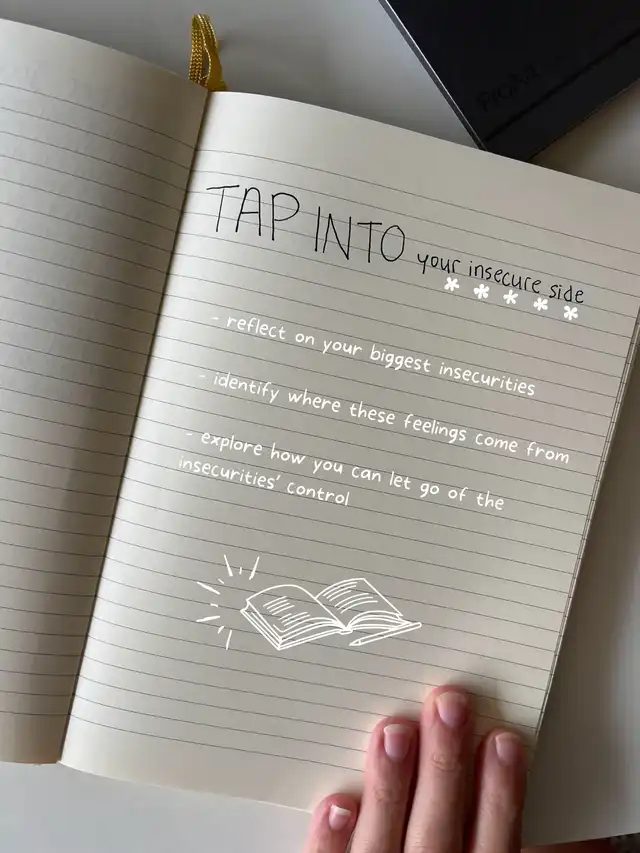 TAP INTO your insecure side
- reflect on your biggest insecurities
- identify where these feelings come from
- explore how you can let go of the
insecurities' control